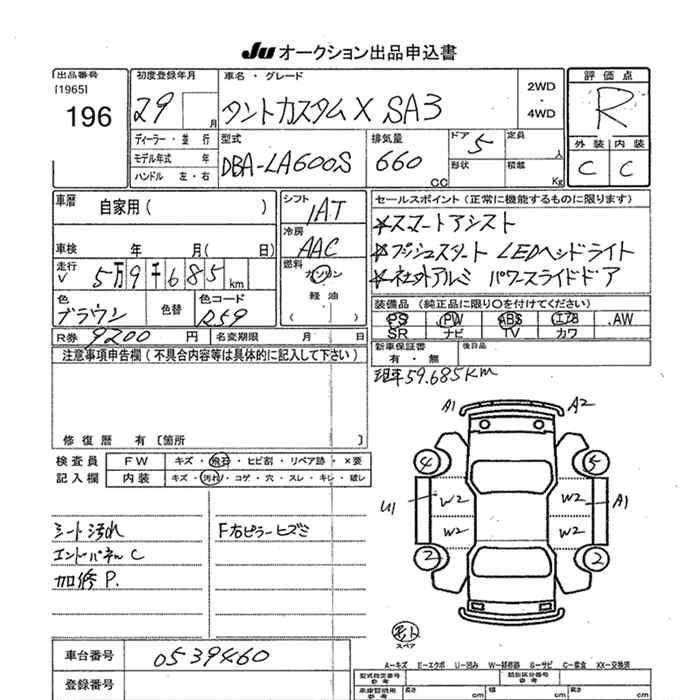 Ju オークション出品申込書
出品番号
[1965]
196
初度登録年月
29 月
車名・グレード
タントカスタムX SA3
2WD
・
4WD
評価点
R
外装 内装
C C
ディーラー・並行
モデル年式 年
ハンドル 左・右
型式
DBA-LA600S
排気量
660 cc
ドア 5
形状
定員 人
積載 Kg
車歴
自家用( )
シフト
IAT
冷房
AAC
燃料
ガソリン
軽油
( )
車検 年 月( 日)
走行
5万9千685km
色
ブラウン
色替
色コード
R59
R券 9200 円
名変期限 月 日
セールスポイント(正常に機能するものに限ります)
★スマートアシスト
★プッシュスタート LEDヘッドライト
★社外アルミ パワースライドドア
装備品(純正品に限り○を付けてください)
PS .PW ABS エアB .AW
SR ナビ TV カワ
新車保証書
有・無
後日品
現車59.685Km
注意事項申告欄(不具合内容等は具体的に記入して下さい)
修復歴 有〔箇所 〕
検査員
記入欄
FW キズ・飛石・ヒビ割・リペア跡・×要
内装 キズ・汚れ・コゲ・穴・スレ・キレ・破レ
シート汚れ
エンドパネルC
加修P.
F右ピラーヒズミ
A1 A2
4 5
U1 W2 W2 A1
W2 W2
2 2
スペア
A-キズ E-エクボ U-凹み W-補修跡 S-サビ C-腐食 XX-交換済
車台番号 0539460
登録番号
型式指定番号
参考
類別区分番号
参考
車庫証明用
参考
長さ cm 幅 cm 高さ cm